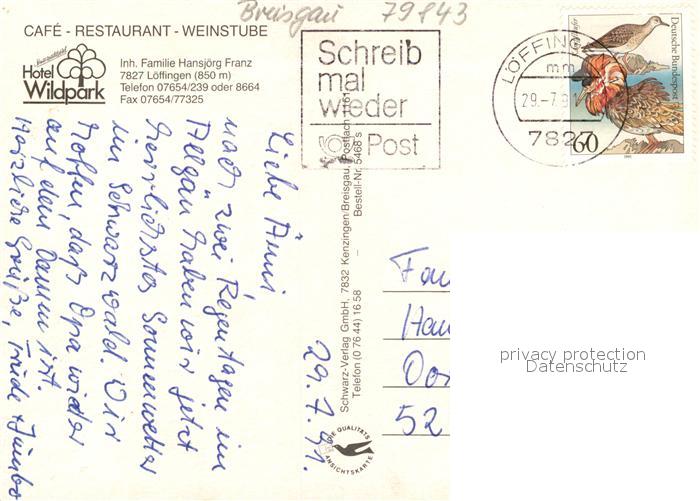 Breisgau 79843
CAFÉ - RESTAURANT - WEINSTUBE
Hotel
Wildpark
Inh. Familie Hansjörg Franz
7827 Löffingen (850 m)
Telefon 07654/239 oder 8664
Fax 07654/77325
Schreib
mal
wieder
Post
LÖFFING
mm
29.-7.91
7827
Deutsche Bundespost
60
29.7.91.
Liebe Änni
nach zwei Regentagen im
Allgäu haben wir jetzt
herrlichstes Sonnenwetter
im Schwarzwald. Wir
hoffen, daß Opa wieder
auf dem Damm ist.
Herzliche Grüße, Trude + Jumbo
Schwarz-Verlag GmbH, 7832 Kenzingen/Breisgau, Postfach 1161
Telefon (0 76 44) 16 58
Bestell-Nr. 5468 s
DIE QUALITÄTS
ANSICHTSKARTE
Fam
Han
Dor
52
privacy protection
Datenschutz